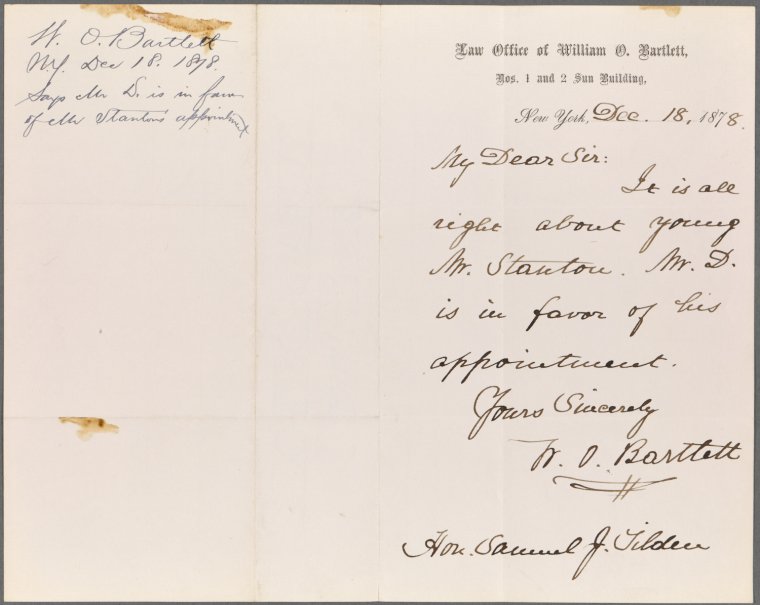 W. O. Bartlett
NY. Dec 18. 1878.
Says Mr D. is in favor
of Mr Stantons appointment
Law Office of William O. Bartlett,
Nos. 1 and 2 Sun Building,
New York, Dec. 18, 1878.
My Dear Sir:
It is all
right about young
Mr. Stanton. Mr. D.
is in favor of his
appointment.
Yours Sincerely
W. O. Bartlett
Hon. Samuel J. Tilden